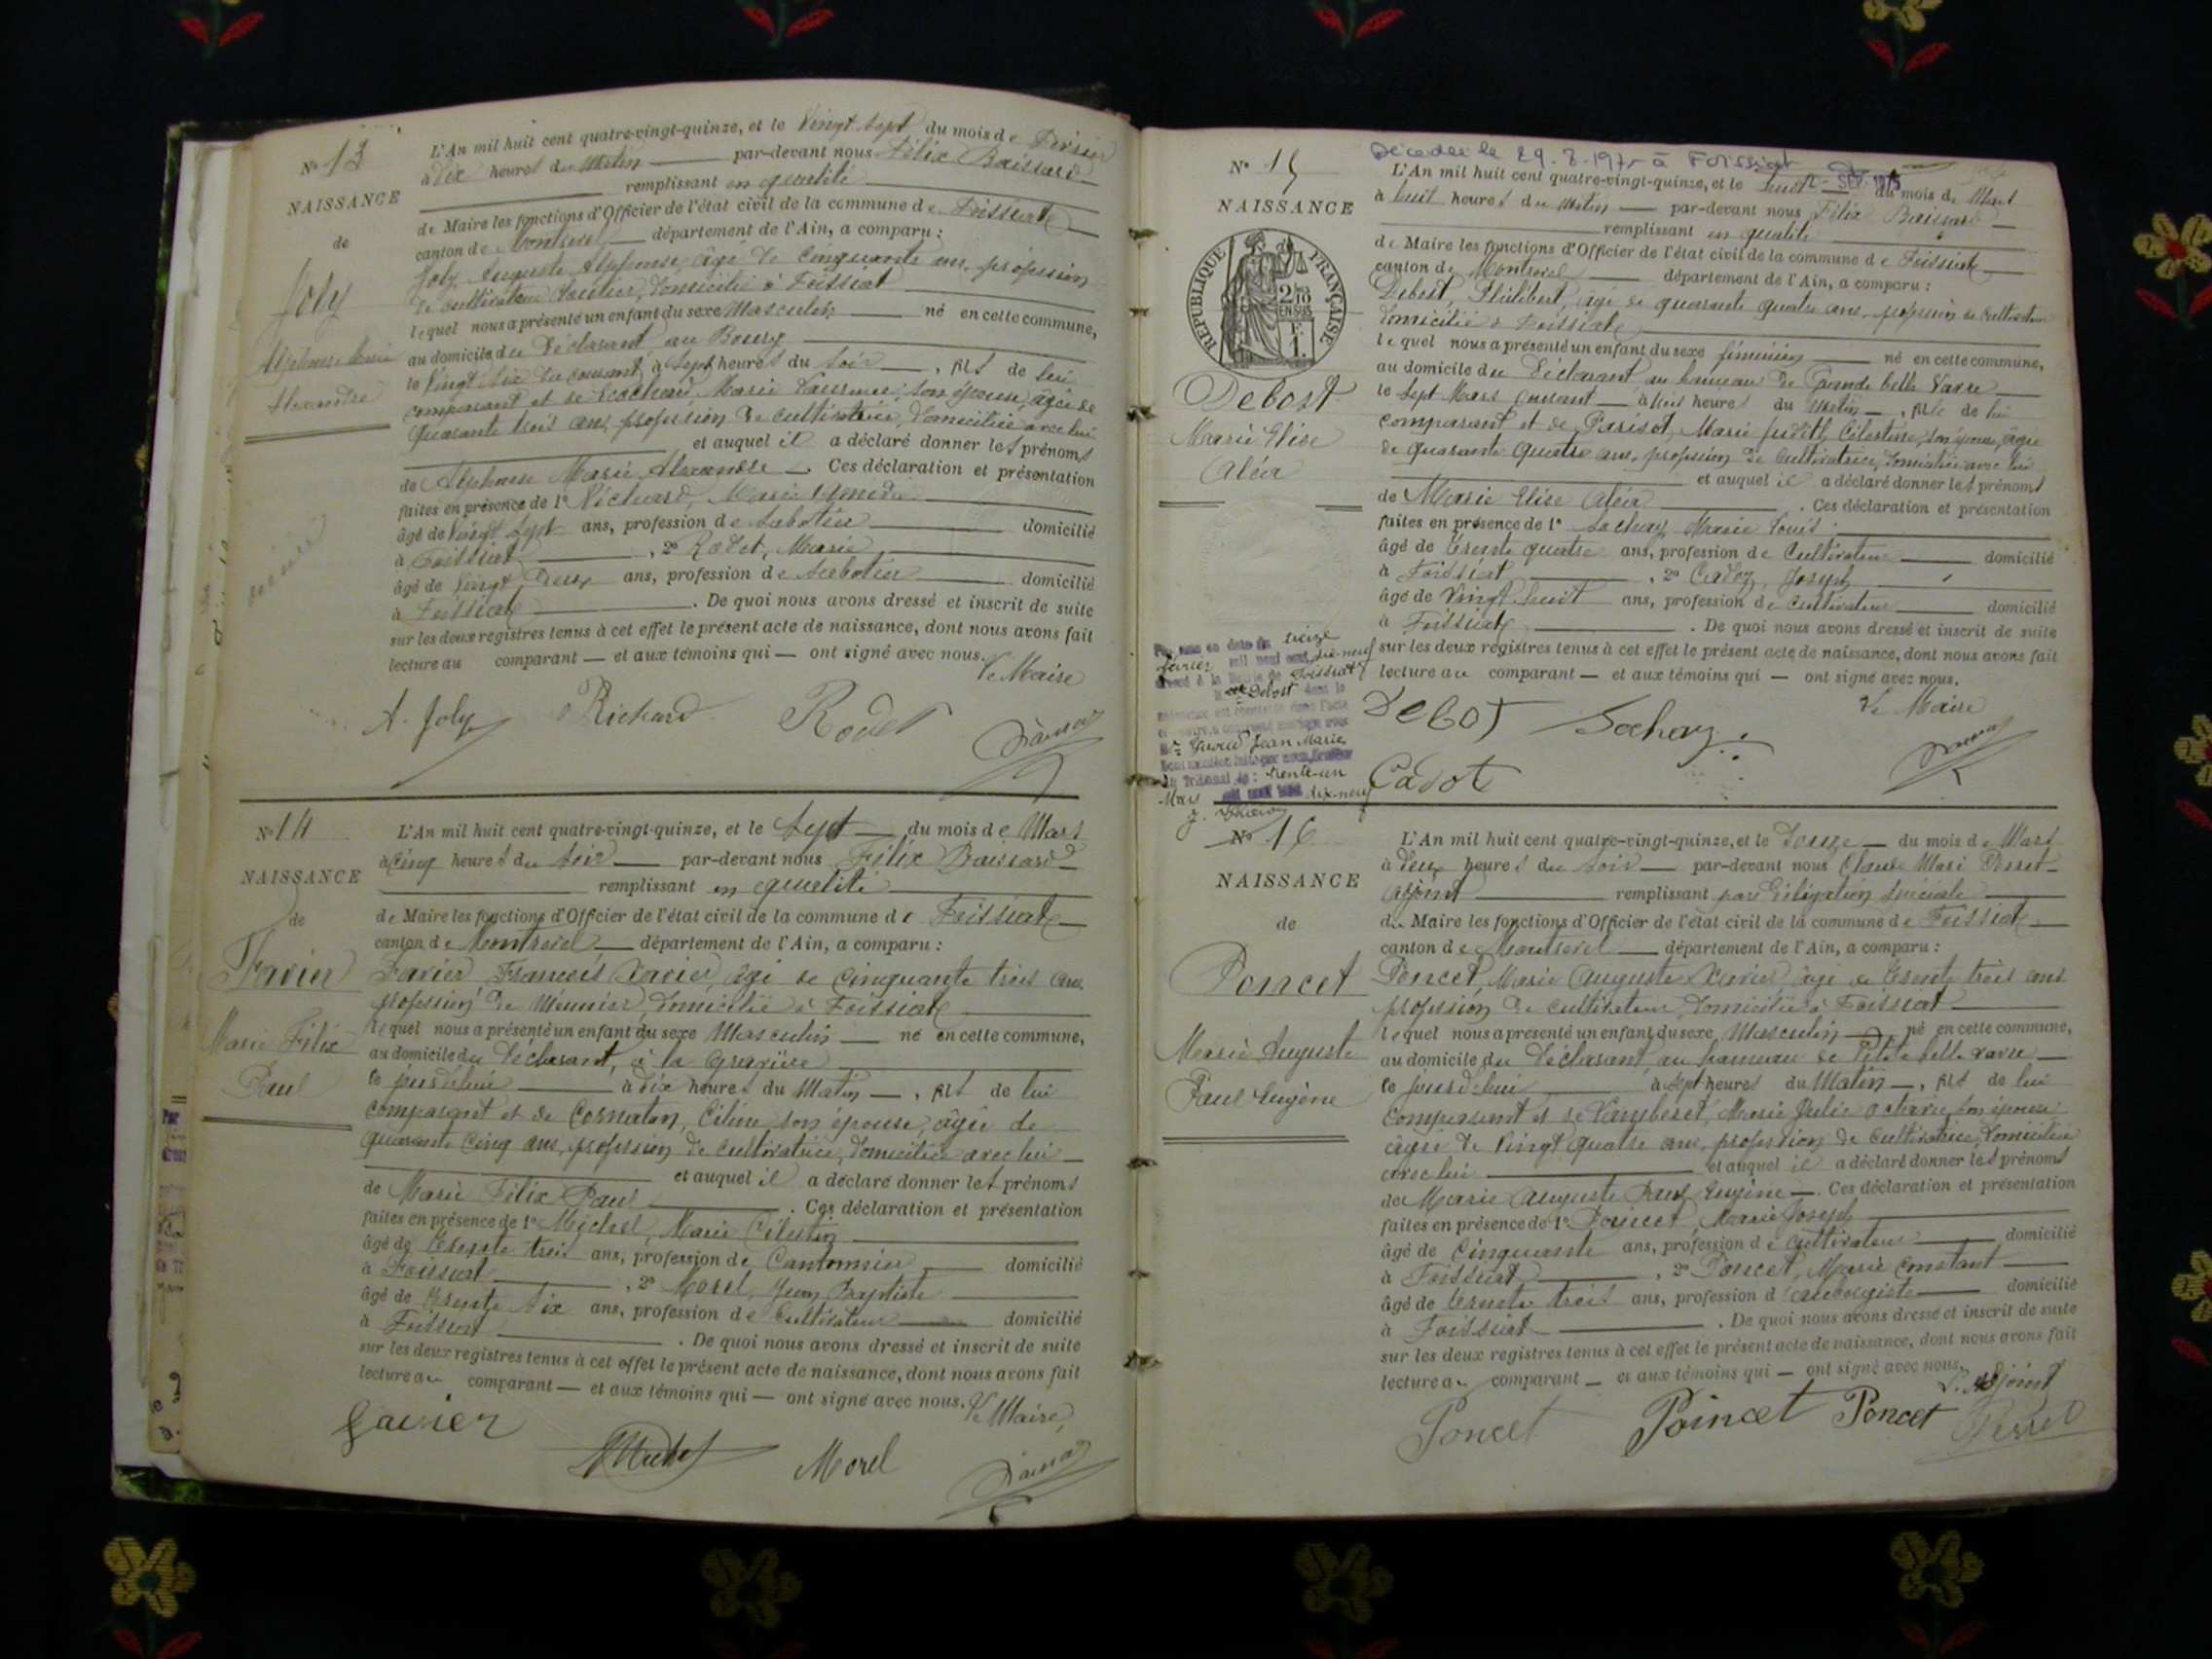 N° 13
NAISSANCE
de
Joly
Alphonse Marie
Alexandre
L'An mil huit cent quatre-vingt-quinze, et le Vingt Sept du mois de Février
à dix heures du Matin par-devant nous Félix Baissard
remplissant en qualité
de Maire les fonctions d'Officier de l'état civil de la commune de Foissiat
canton de Montrevel département de l'Ain, a comparu :
Joly Auguste Alphonse, âgé de Cinquante ans, profession
de cultivateur, domicilié à Foissiat
lequel nous a présenté un enfant du sexe Masculin né en cette commune,
au domicile du Déclarant au Bourg
le Vingt Six du courant, à Sept heures du Soir, fils de lui
comparant et de Marie Laurence, son épouse, âgée de
Quarante trois ans, profession de cultivatrice, domiciliée avec lui
et auquel il a déclaré donner les prénoms
de Alphonse Marie Alexandre. Ces déclaration et présentation
faites en présence de 1° Richard, Marie
âgé de Vingt Sept ans, profession de Sabotier domicilié
à Foissiat, 2° Rodet, Marie
âgé de Vingt Deux ans, profession de Sabotier domicilié
à Foissiat. De quoi nous avons dressé et inscrit de suite
sur les deux registres tenus à cet effet le présent acte de naissance, dont nous avons fait
lecture au comparant — et aux témoins qui — ont signé avec nous.
Le Maire
A. Joly Richard Rodet
N° 14
NAISSANCE
de
Favier
Marie Félix
Paul
L'An mil huit cent quatre-vingt-quinze, et le Sept du mois de Mars
à Cinq heures du Soir par-devant nous Félix Baissard
remplissant en qualité
de Maire les fonctions d'Officier de l'état civil de la commune de Foissiat
canton de Montrevel département de l'Ain, a comparu :
Favier François Xavier, âgé de Cinquante trois ans
profession de Meunier, domicilié à Foissiat
lequel nous a présenté un enfant du sexe Masculin né en cette commune,
au domicile du Déclarant, à la
le jourd'hui à dix heures du Matin, fils de lui
comparant et de Cornaton, Céline son épouse, âgée de
quarante Cinq ans, profession de cultivatrice, domiciliée avec lui
et auquel il a déclaré donner les prénoms
de Marie Félix Paul. Ces déclaration et présentation
faites en présence de 1° Michel, Marie Célestin
âgé de trente trois ans, profession de Cantonnier domicilié
à Foissiat, 2° Morel, Jean Baptiste
âgé de trente Six ans, profession de Cultivateur domicilié
à Foissiat. De quoi nous avons dressé et inscrit de suite
sur les deux registres tenus à cet effet le présent acte de naissance, dont nous avons fait
lecture au comparant — et aux témoins qui — ont signé avec nous.
Le Maire
Favier Morel
Décédée le 29.8.1975 à Foissiat
N° 15
NAISSANCE
RÉPUBLIQUE FRANÇAISE
2/10 EN SUS
Debost
Marie Elise
Aléa
L'An mil huit cent quatre-vingt-quinze, et le huit du mois de Mars
à huit heures du Matin par-devant nous Félix Baissard
remplissant en qualité
de Maire les fonctions d'Officier de l'état civil de la commune de Foissiat
canton de Montrevel département de l'Ain, a comparu :
Debost, Philibert, âgé de quarante quatre ans, profession de Cultivateur
domicilié à Foissiat
lequel nous a présenté un enfant du sexe féminin né en cette commune,
au domicile du Déclarant au hameau de Grande belle Vavre
le Sept Mars Courant à trois heures du Matin, fille de lui
comparant et de Parisot, Marie Judith Célestine, son épouse, âgée
de quarante quatre ans, profession de Cultivatrice, domiciliée avec lui
et auquel il a déclaré donner les prénoms
de Marie Elise Aléa. Ces déclaration et présentation
faites en présence de 1° Sochay, Marie Louis
âgé de trente quatre ans, profession de Cultivateur domicilié
à Foissiat, 2° Cadoz, Joseph
âgé de Vingt huit ans, profession de cultivateur domicilié
à Foissiat. De quoi nous avons dressé et inscrit de suite
sur les deux registres tenus à cet effet le présent acte de naissance, dont nous avons fait
lecture au comparant — et aux témoins qui — ont signé avec nous.
Le Maire
Debost Sochay
Cadot
en date du treize
février mil neuf cent dix-neuf
Foissiat
Debost
Favier Jean Marie
trente-un
Mars dix-neuf
N° 16
NAISSANCE
de
Poncet
Marie Auguste
Paul Eugène
L'An mil huit cent quatre-vingt-quinze, et le Douze du mois de Mars
à deux heures du Soir par-devant nous Claude Marie Perret
Adjoint remplissant par Délégation Spéciale
de Maire les fonctions d'Officier de l'état civil de la commune de Foissiat
canton de Montrevel département de l'Ain, a comparu :
Poncet, Marie Auguste Xavier, âgé de trente trois ans
profession de cultivateur, domicilié à Foissiat
lequel nous a présenté un enfant du sexe Masculin né en cette commune,
au domicile du Déclarant au hameau de Petite belle vavre
le jourd'hui à Sept heures du Matin, fils de lui
comparant et de Marie Julie Octavie, son épouse
âgée de Vingt quatre ans, profession de Cultivatrice, domiciliée
avec lui et auquel il a déclaré donner les prénoms
de Marie Auguste Paul Eugène. Ces déclaration et présentation
faites en présence de 1° Poincet, Marie Joseph
âgé de Cinquante ans, profession de Cultivateur domicilié
à Foissiat, 2° Poncet, Marie Constant
âgé de trente trois ans, profession d'aubergiste domicilié
à Foissiat. De quoi nous avons dressé et inscrit de suite
sur les deux registres tenus à cet effet le présent acte de naissance, dont nous avons fait
lecture au comparant — et aux témoins qui — ont signé avec nous.
L'Adjoint
Poncet Poincet Poncet Perret